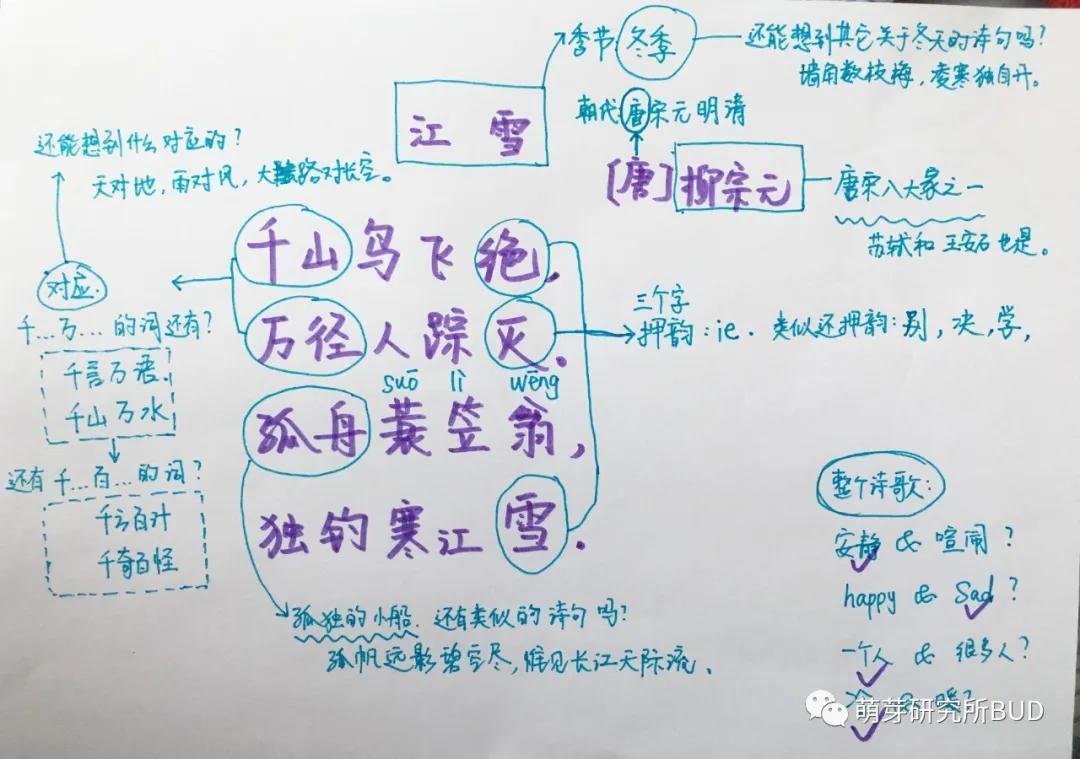 季节:冬季
还能想到其它关于冬天的诗句吗?
墙角数枝梅,凌寒独自开。
江 雪
朝代:唐宋元明清
[唐]柳宗元
唐宋八大家之一
苏轼和王安石也是。
还能想到什么对应的?
天对地,雨对风,大陆对长空。
千山鸟飞绝,
万径人踪灭.
suō lì wēng
孤舟蓑笠翁,
独钓寒江雪.
对应.
千…万…的词还有?
千言万语.
千山万水
还有千…百…的词?
千方百计
千奇百怪
三个字
押韵:ie. 类似还押韵:别,决,学,
孤独的小船. 还有类似的诗句吗?
孤帆远影碧空尽,惟见长江天际流.
整个诗歌:
安静 & 喧闹?
happy & Sad?
一个人 & 很多人?
& 暖?
萌芽研究所BUD